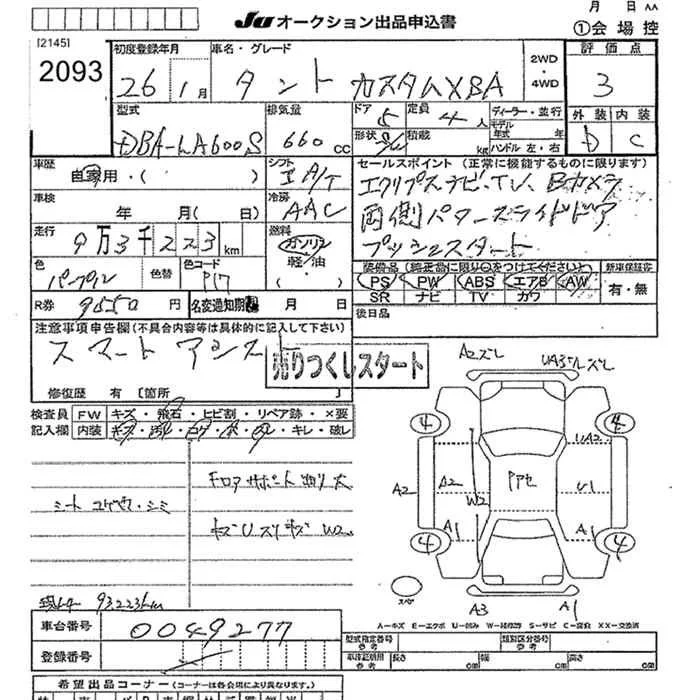 月 日 AA
JU オークション出品申込書
①会場控
[2145]
2093
初度登録年月
26 1月
車名・グレード
タント カスタムXSA
2WD
・
4WD
評価点
3
型式
DBA-LA600S
排気量
660 cc
ドア 5
形状
定員 4人
積載 kg
ディーラー・並行
モデル年式 年
ハンドル 左・右
外装 内装
D C
車歴
自家用・( )
シフト
IA/T
セールスポイント (正常に機能するものに限ります)
エクリプスナビ・TV、Bカメラ
両側パワースライドドア
プッシュスタート
車検
年 月(日)
冷房
AAC
走行
9万3千223km
燃料
ガソリン
軽・油
色
パープル
色替
色コード
P17
装備品(純正品に限り○をつけてください)
PS PW ABS エアB AW
SR ナビ TV カワ
新車保証書
有・無
R券 9550円
名変通知期限 月 日
後日品
注意事項申告欄(不具合内容等は具体的に記入して下さい)
スマートアシスト
売りつくしスタート
修復歴 有 [箇所 ]
検査員 FW キズ・飛石・ヒビ割・リペア跡・×要
記入欄 内装 キズ・汚れ・コゲ・穴・・キレ・破レ
A2ズレ
UA3
ズレ
4 4
UA2
フロアサポート 大
A2 A2 W2 U1
シート コゲ穴・シミ
キズUスリキズ W2
A1 A1
4 4
スペア
A3 A1
93223km
A―キズ E―エクボ U―凹み W―補修跡 S―サビ C―腐食 XX―交換済
車台番号 0049277
登録番号
型式指定番号 参考
類別区分番号 参考
車庫証明用 参考 長さ cm 幅 cm 高さ cm
希望出品コーナー(各会場により異なります)